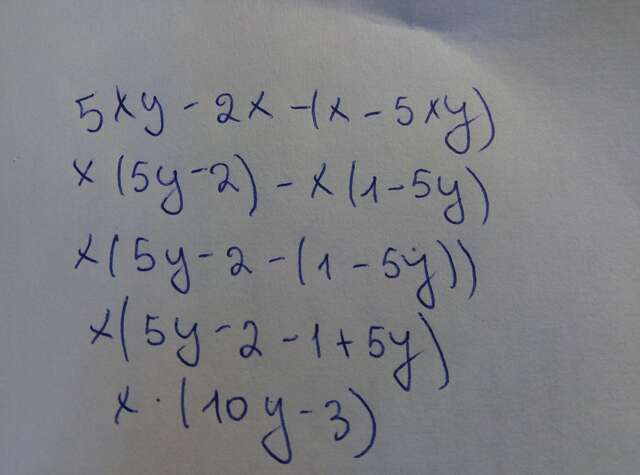 5xy - 2x - (x - 5xy)
x (5y - 2) - x (1 - 5y)
x (5y - 2 - (1 - 5y))
x (5y - 2 - 1 + 5y)
x · (10y - 3)